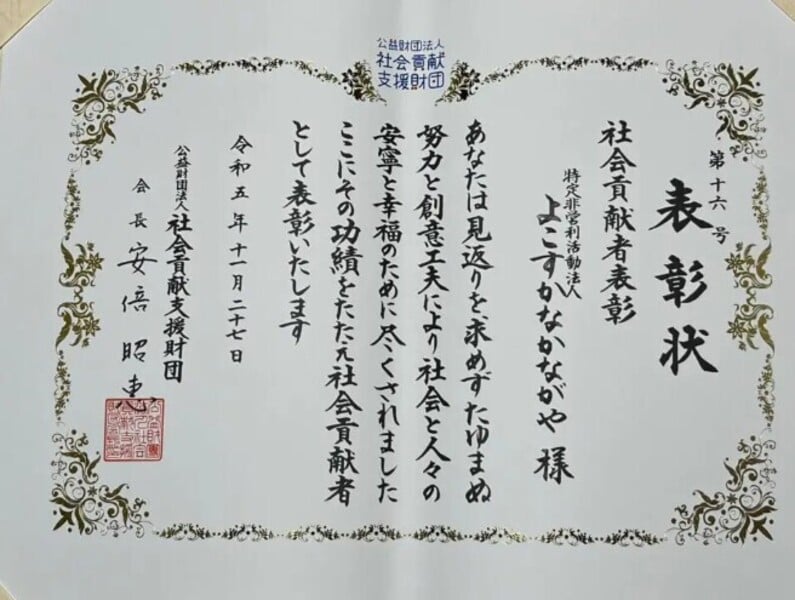 公益財団法人
社会貢献
支援財団
第十六号
表彰状
社会貢献者表彰
特定非営利活動法人
よこすかなかながや 様
あなたは見返りを求めずたゆまぬ
努力と創意工夫により社会と人々の
安寧と幸福のために尽くされました
ここにその功績をたたえ社会貢献者
として表彰いたします
令和五年十一月二十七日
公益財団法人 社会貢献支援財団
会長 安倍昭恵